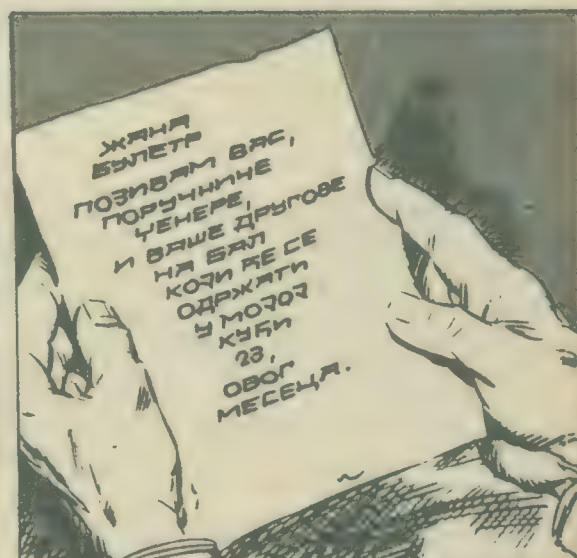 ЖАНА
БУЛЕТР
ПОЗИВАМ ВАС,
ПОРУЧНИЧЕ
ЧЕНЕРЕ,
И ВАШЕ ДРУГОВЕ
НА БАЛ
КОЈИ ЋЕ СЕ
ОДРЖАТИ
У МОЈОЈ
КУЋИ
23,
ОВОГ
МЕСЕЦА.